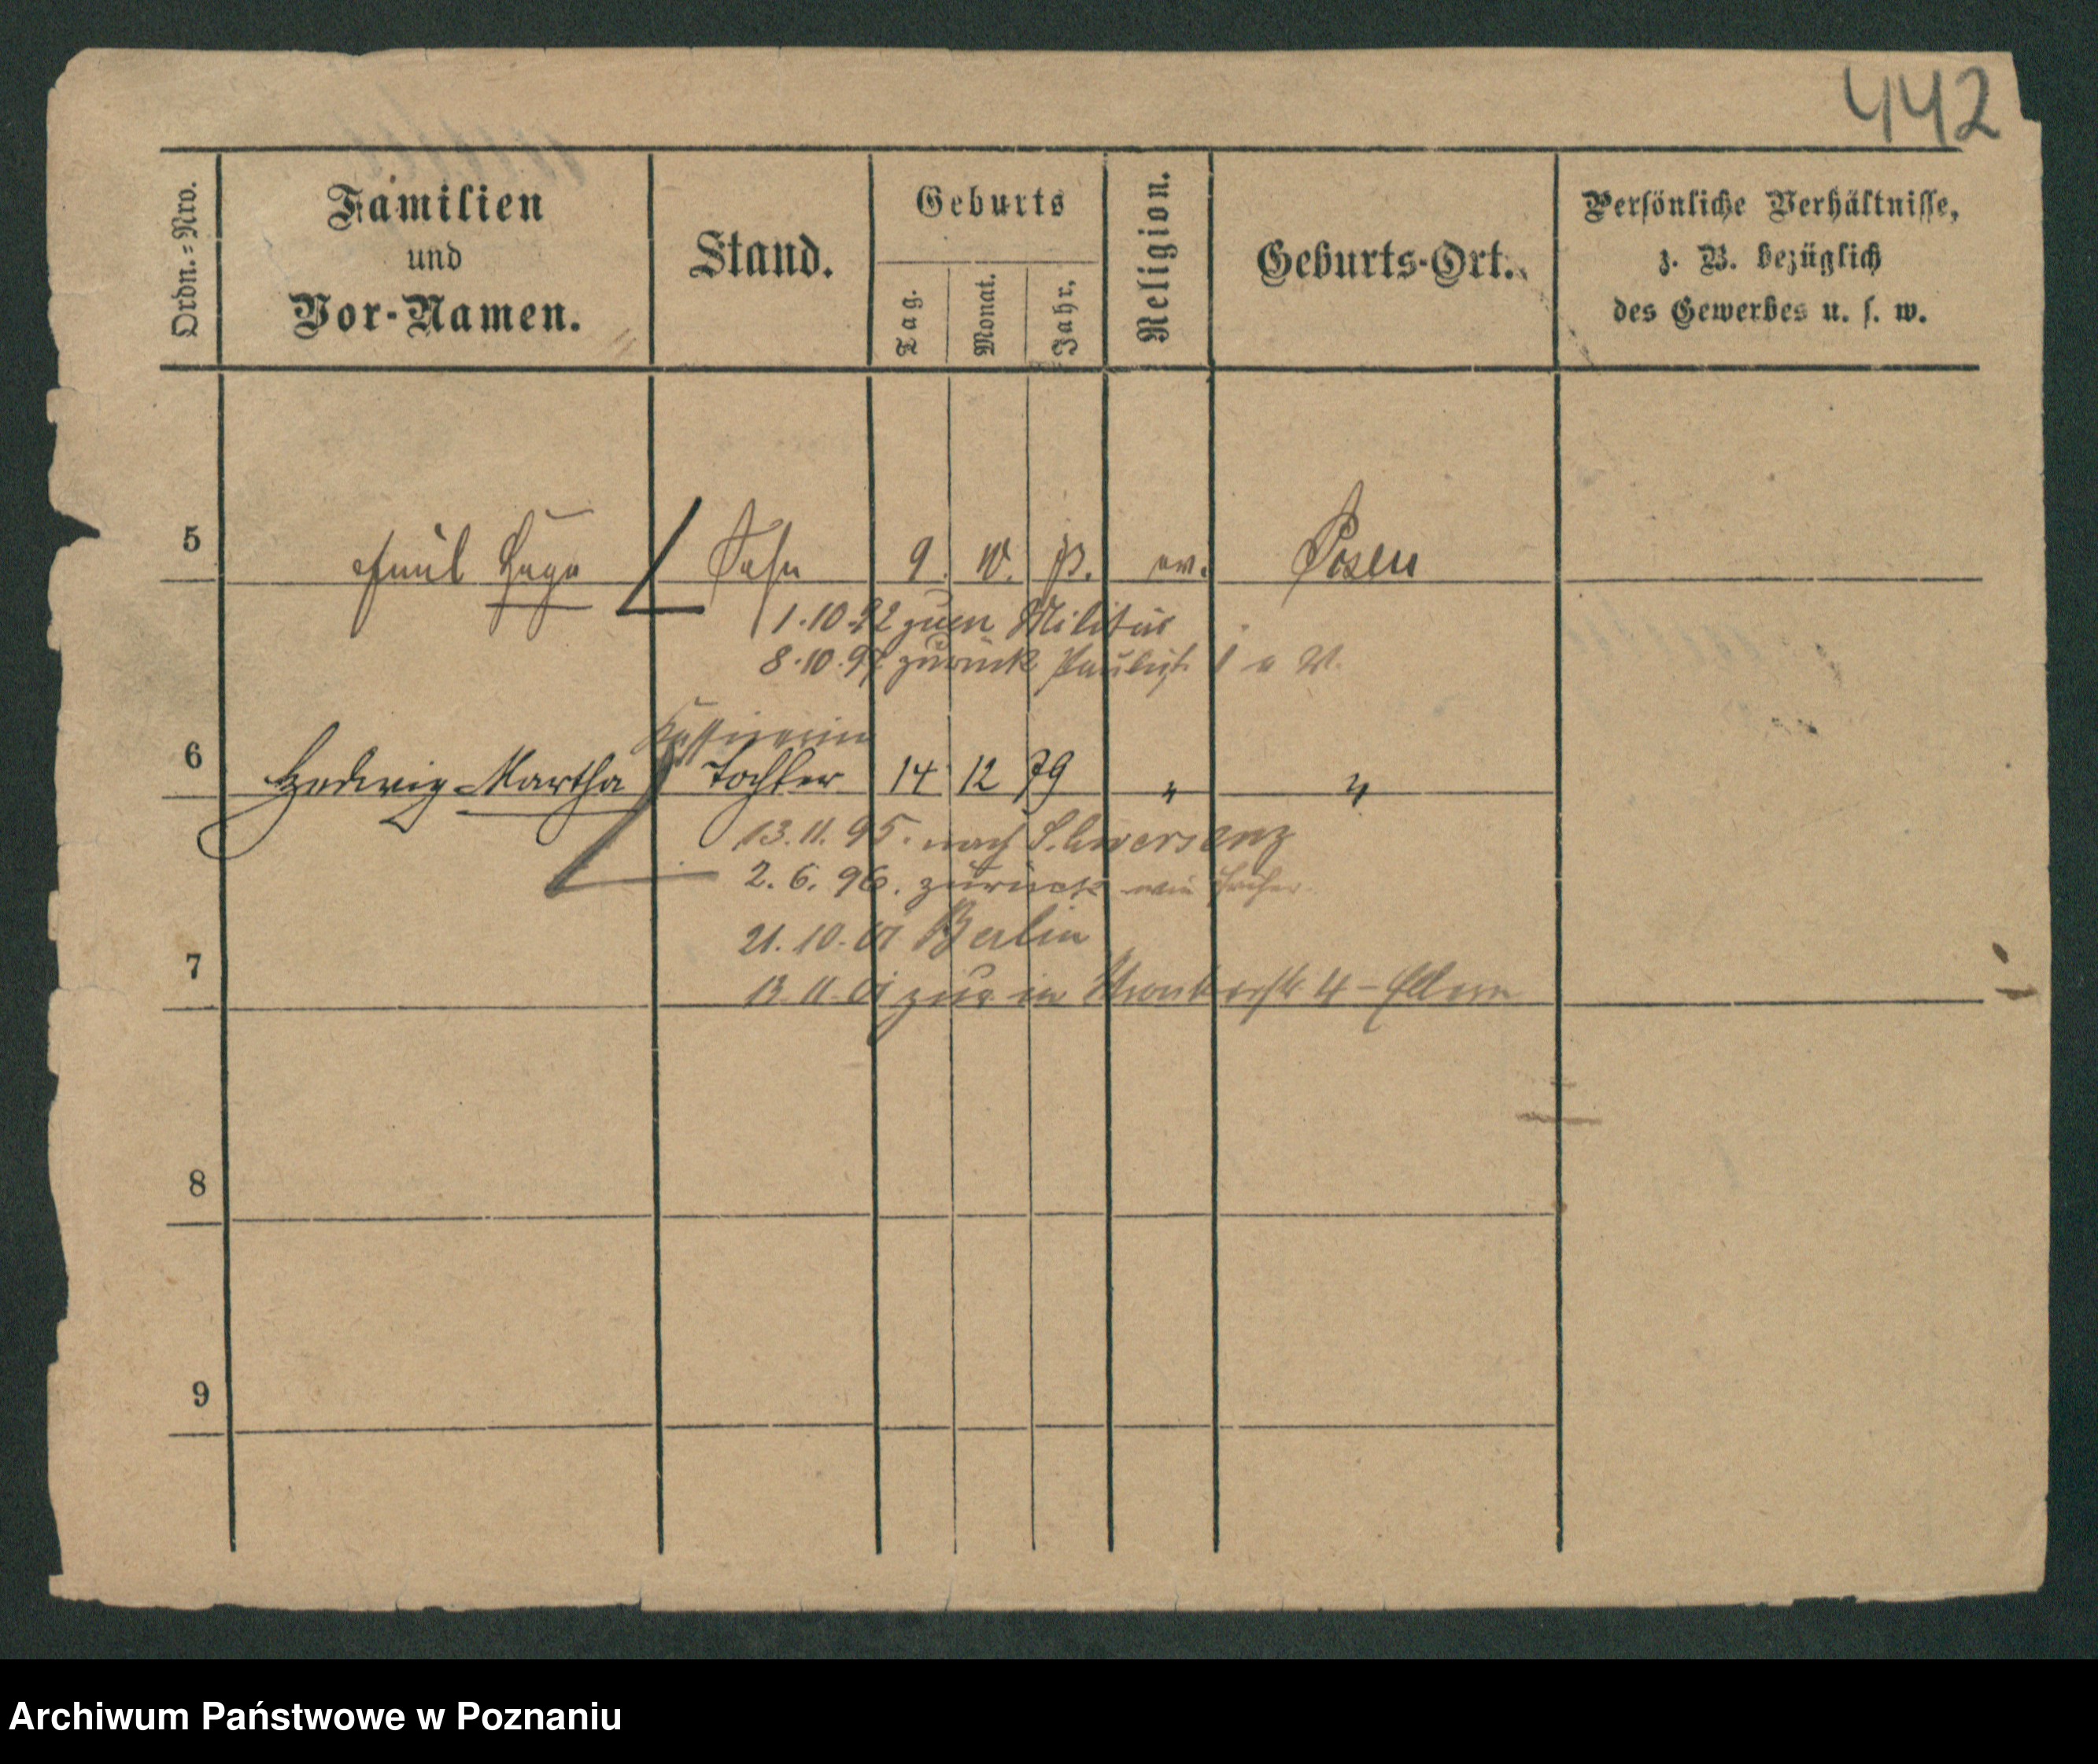 442
Ordn.=Nro.
Familien
und
Vor-Namen.
Stand.
Geburts
Tag.
Monat.
Jahr.
Religion.
Geburts-Ort.
Persönliche Verhältnisse,
z. B. bezüglich
des Gewerbes u. s. w.
5 Emil Hugo Sohn 9. ev. Posen
1.10.92 zum Militär
8.10.97 zurück
Kassirerin
6 Hedwig-Martha Tochter 14 12 79 " "
13.11.95. nach Schwersenz
2.6.96. zurück wie früher
21.10.01 Berlin
7
13.11.01 zur in Wronkerstr 4 - Eltern
8
9
Archiwum Państwowe w Poznaniu